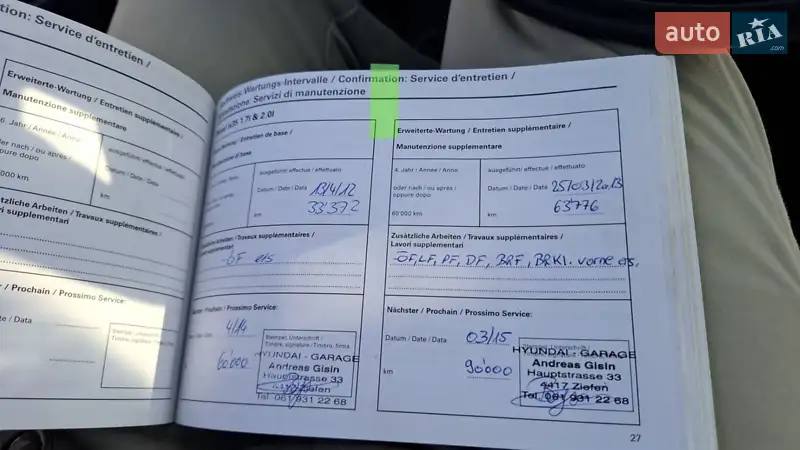 tion: Service d'entretien /
Erweiterte-Wartung / Entretien supplémentaire /
Manutenzione supplementare
6. Jahr / Année / Anno
oder nach / ou après /
oppure dopo
000 km
ausgeführt/ effectué / effettuato
Datum / Date / Data
km
zliche Arbeiten / Travaux supplémentaires /
ri supplementari
/ Prochain / Prossimo Service:
te / Data
Stempel, Unterschrift /
Timbre, signature / Timbro, firma
Wartungs-Intervalle / Confirmation: Service d'entretien /
Servizi di manutenzione
ix35 1.7l & 2.0l
/ Entretien de base /
ausgeführt/ effectué / effettuato
Datum / Date / Data 13/4/12
km 33'372
Arbeiten / Travaux supplémentaires /
supplementari
ÖF ers
/ Prochain / Prossimo Service:
4/14
60'000
Stempel, Unterschrift /
Timbre, signature / Timbro, firma
HYUNDAI - GARAGE
Andreas Gisin
Hauptstrasse 33
4417 Ziefen
Tel. 061 931 22 68
Erweiterte-Wartung / Entretien supplémentaire /
Manutenzione supplementare
4. Jahr / Année / Anno
oder nach / ou après /
oppure dopo
60'000 km
ausgeführt/ effectué / effettuato
Datum / Date / Data 25/03/2013
km 63776
Zusätzliche Arbeiten / Travaux supplémentaires /
Lavori supplementari
ÖF, LF, PF, DF, BRF, BRKl. vorne ers.
Nächster / Prochain / Prossimo Service:
Datum / Date / Data 03/15
km 90'000
Stempel, Unterschrift /
HYUNDAI - GARAGE
Andreas Gisin
Hauptstrasse 33
4417 Ziefen
Tel. 061 931 22 68
27
auto RIA .com